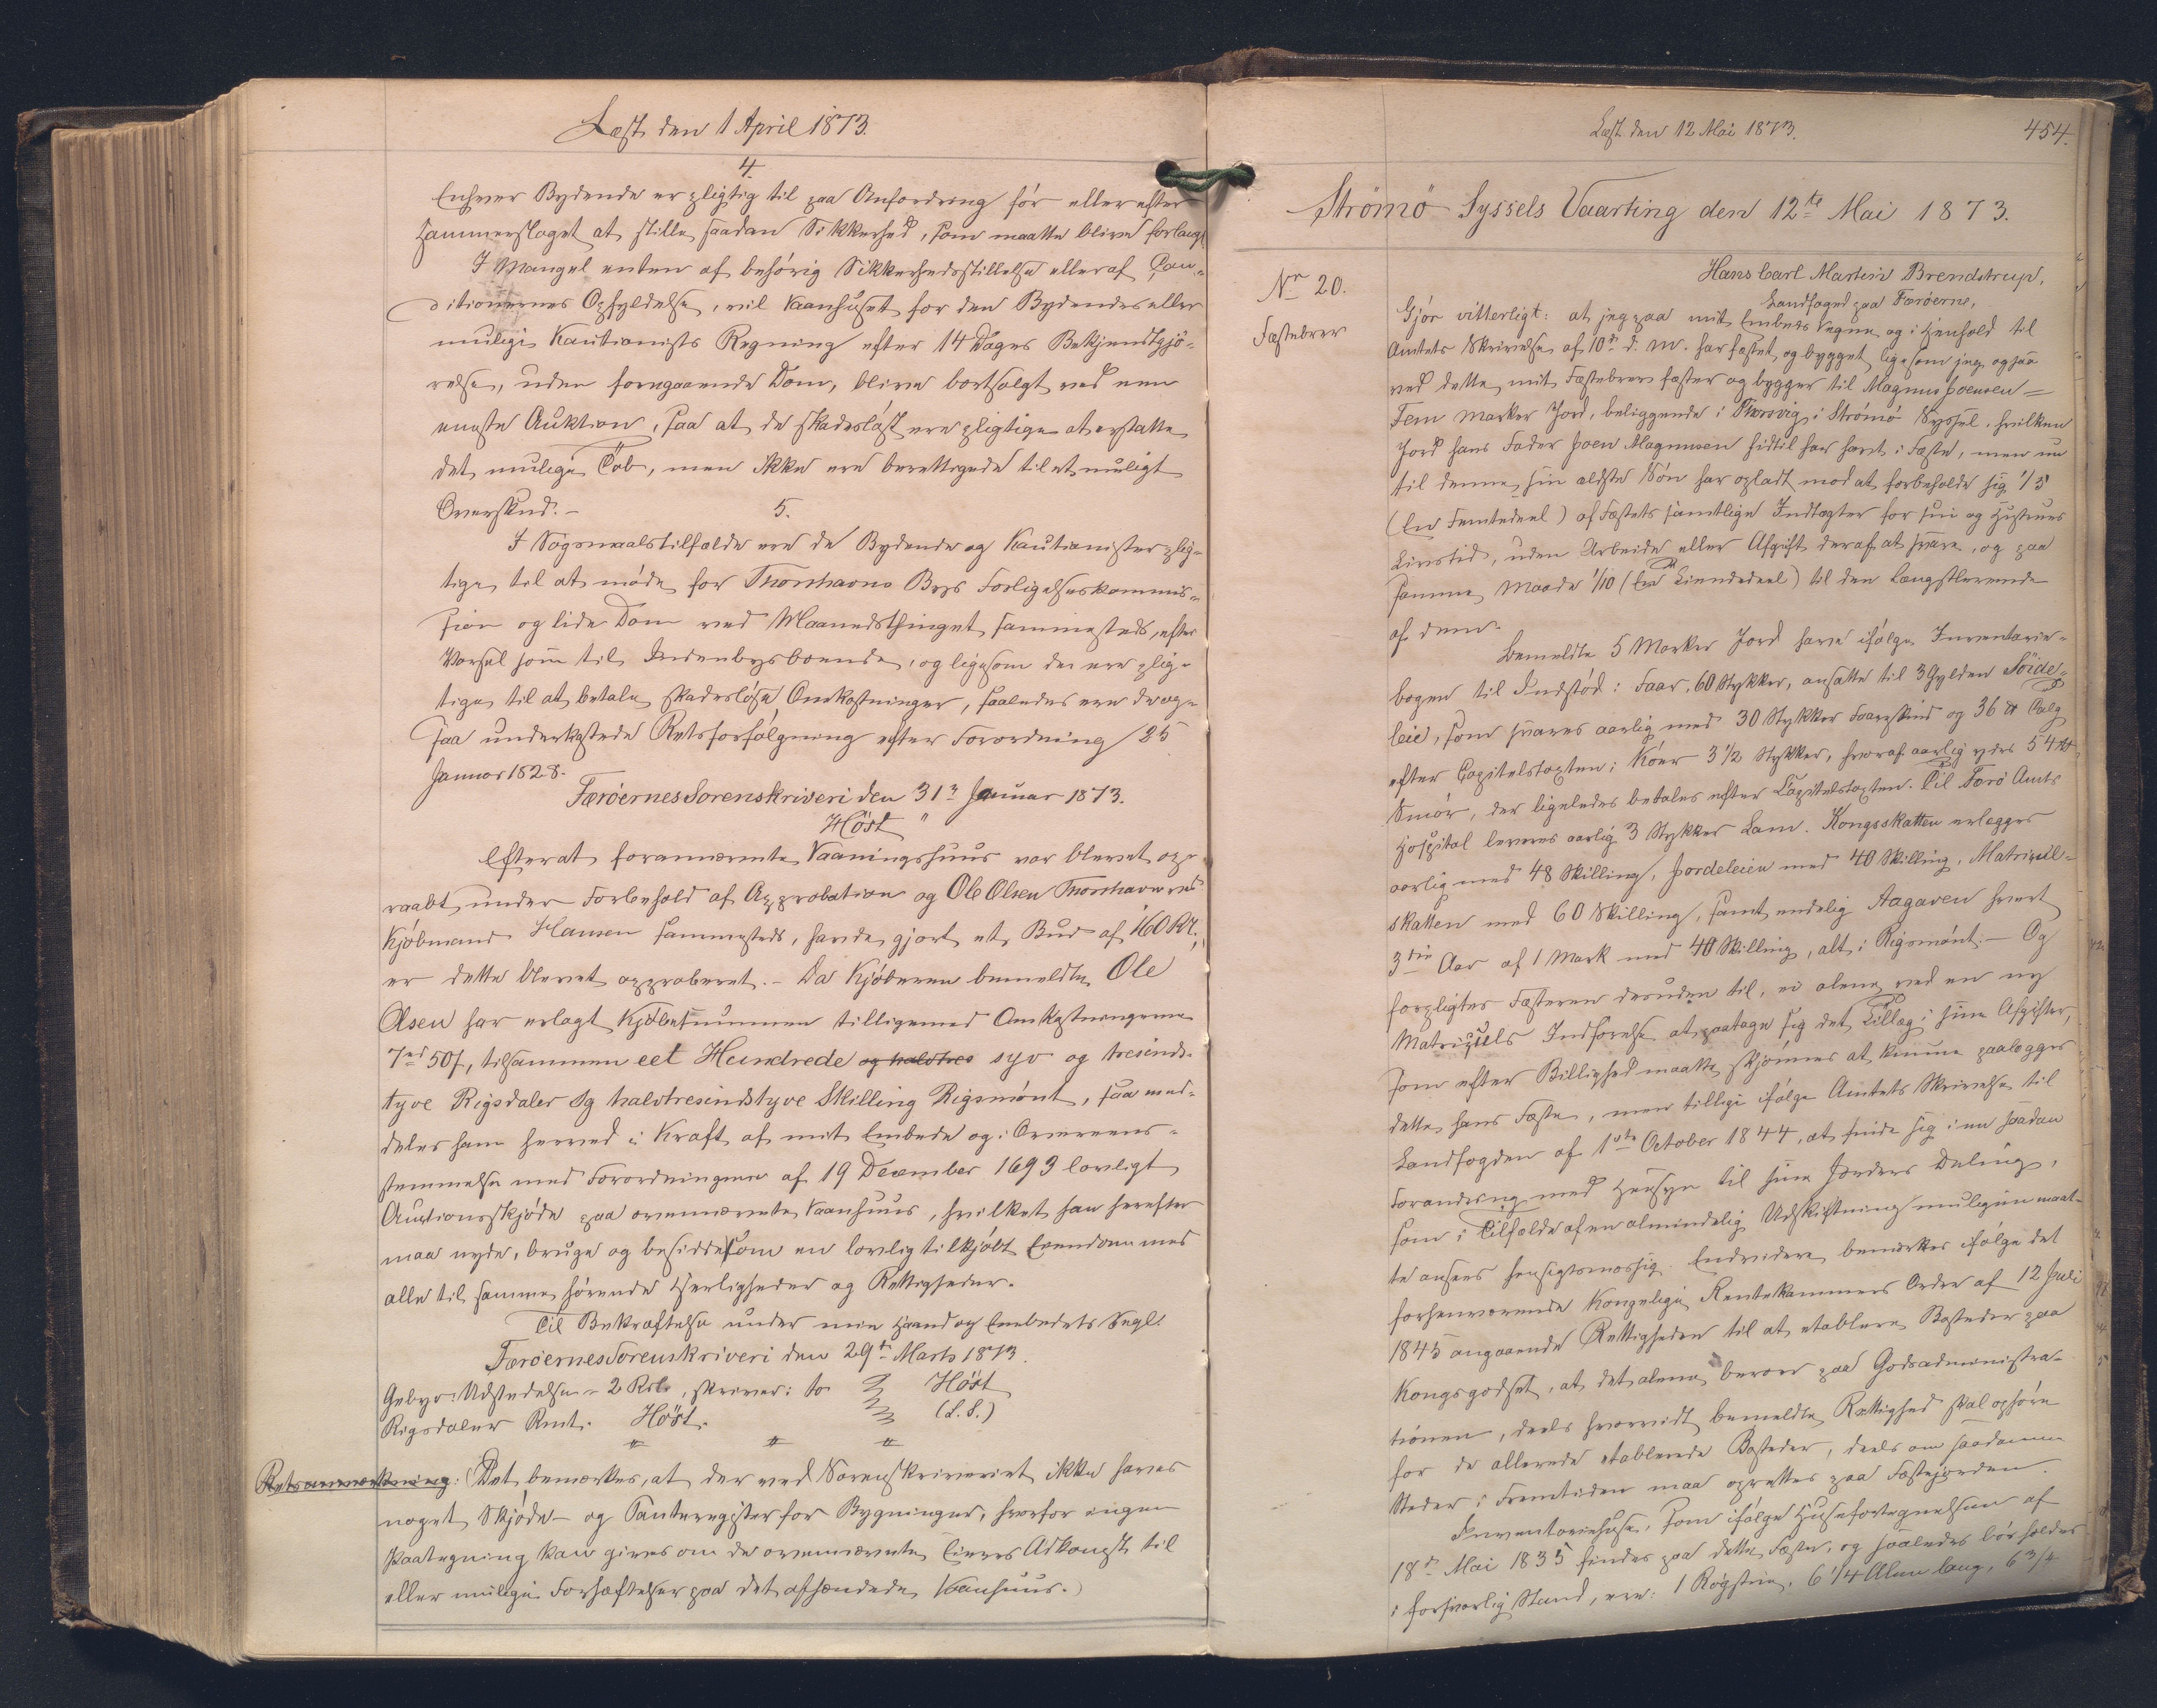 Læst den 1 April 1873.
4.
Enhver Bydende er pligtig til paa Anfordring før eller efter
Hammerslaget at stille saadan Sikkerhed, som maatte blive forlangt
I Mangel enten af behørig Sikkerhedsstillelse eller af Con-
ditionernes Opfyldelse, vil Vaanhuset for den Bydendes eller
mulige Kautionists Regning efter 14 Dages Bekjendtgjö-
relse, uden foregaaende Dom, blive bortsolgt ved een
eneste Auktion, saa at de skadesløst ere pligtige at erstatte
det mulige Tab, men ikke ere berettigede til et muligt
Overskud.-
5.
I Søgsmaalstilfælde ere de Bydende og Kautionister plig-
tige til at møde for Thorshavns Byes Forligelseskommis-
sion og lide Dom ved Maanedsthinget sammesteds, efter
Varsel som til Indenbysboende, og ligesom de ere plig-
tige til at betale skadesløse Omkostninger, saaledes ere de og-
saa underkastede Retsforfølgning efter Forordning 25
Januar 1828.
Færöernes Sorenskriveri den 31te Januar 1873.
Höst
Efterat forannævnte Vaaningshuus var blevet op-
raabt under Forbehold af Approbation og Ole Olsen Thorshavn ved
Kjøbmand Hansen sammesteds, havde gjort et Bud af 160 Rd.,
er dette blevet approberet.- Da Kjøberen bemeldte Ole
Olsen har erlagt Kjøbesummen tilligemed Omkostningerne
7rd 50s, tilsammen eet Hundrede og halvtres syv og tresinds-
tyve Rigsdaler og halvtresindstyve Skilling Rigsmønt, saa med-
deles ham herved i Kraft af mit Embede og i Overeens-
stemmelse med Forordningen af 19 December 1693 lovligt
Auctionsskjøde paa ovennævnte Vaanhuus, hvilket han herefter
maa nyde, bruge og besidde som en lovlig tilkjøbt Eiendom med
alle til samme hørende Herligheder og Rettigheder.
Til Bekræftelse under min Haand og Embedets Segl.
Færöernes Sorenskriveri den 29de Marts 1873.
Gebyr: Udstedelse - 2 Rdlr, skriver: to Höst
Rigsdaler Rmt. Höst. (L.S.)
Retsanmærkning: (Det bemærkes, at der ved Sorenskriveriet ikke haves
noget Skjøde- og Panteregister for Bygninger, hvorfor ingen
Paategning kan gives om de ovennævnte Eieres Adkomst til
eller mulige Forhæftelser paa det afhændede Vaanhuus.)
Læst den 12 Mai 1873. 454.
Strömö Syssels Vaarting den 12te Mai 1873.
Nr 20.
Fæstebrev
Hans Carl Martin Brendstrup,
Landfoged paa Færöerne,
Gjør vitterligt: at jeg paa mit Embeds Vegne og i Henhold til
Amtets Skrivelse af 10de d. M. har fæstet og bygget, ligesom jeg ogsaa
ved dette mit Fæstebrev fæster og bygger til Magnus Joensen -
Fem Marker Jord, beliggende i Thorsvig i Strömö Syssel, hvilken
Jord hans Fader Joen Magnussen hidtil har havt i Fæste, men nu
til denne sin ældste Søn har opladt mod at forbeholde sig 1/5
(En Femtedeel) af Fæstets samtlige Indtægter for sin og Hustrues
Livstid, uden Arbeide eller Afgift deraf at svare, og paa
samme Maade 1/10 (En Tiendedeel) til den Længstlevende
af dem.
Bemeldte 5 Marker Jord have ifølge Inventarie-
bogen til Indstød: Faar, 60 Stykker, ansatte til 3 Gylden Söide-
leie, som svares aarlig med 30 Stykker Faareskind og 36 ℔ Talg
efter Capitelstaxten; Köer 3 1/2 Stykker, hvoraf aarlig ydes 54 ℔
Smør, der ligeledes betales efter Capitelstaxten. Til Færö Amts
Hospital leveres aarlig 3 Stykker Lam. Kongsskatten erlægges
aarlig med 48 Skilling, Jordeleien med 40 Skilling, Matricul-
skatten med 60 Skilling, samt endelig Aagaven hvert
3die Aar af 1 Mark med 40 Skilling, alt i Rigsmønt. - Og
forpligtes Fæsteren desuden til, ei alene ved en ny
Matriculs Indførelse at paatage sig det Tillæg i sine Afgifter,
som efter Billighed maatte skjønnes at kunne paalægges
dette hans Fæste, men tillige ifølge Amtets Skrivelse til
Landfogden af 1ste October 1844, at finde sig i en saadan
Forandring med Hensyn til sine Jorders Deling,
som i Tilfælde af en almindelig Udskiftning muligen maat-
te ansees hensigtsmæssig. Endvidere bemærkes ifølge det
forhenværende Kongelige Rentekammers Ordre af 12 Juli
1845 angaaende Rettigheden til at etablere Bosteder paa
Kongsgodset, at det alene beroer paa Godsadministra-
tionen, deels hvorvidt bemeldte Rettighed skal ophøre
for de allerede etablerede Bosteder, deels om saadanne
Steder i Fremtiden maa oprettes paa Fæstejorden.
Inventariehuse, som ifølge Husefortegnelsen af
18de Mai 1835 findes paa dette Fæste, og saaledes bør holdes
i forsvarlig Stand, ere: 1 Røgstue, 6 1/4 Alen lang, 6 3/4